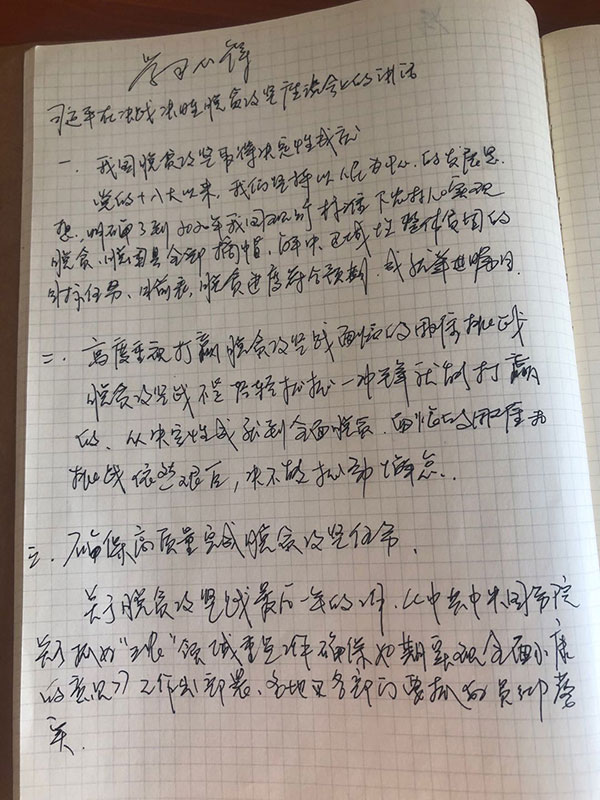 学习心得
习近平在决战决胜脱贫攻坚座谈会上的讲话
一、我国脱贫攻坚取得决定性成就
党的十八大以来，我们坚持以人民为中心的发展思
想，明确了到2020年我国现行标准下农村人口实现
脱贫、脱困县全部摘帽，解决区域性整体贫困的
目标任务、目前看，脱贫进度符合预期，成就举世瞩目.
二、高度重视打赢脱贫攻坚战面临的困难挑战
脱贫攻坚战不是轻轻松松一冲锋就能打赢
的、从决定性成就到全面脱贫，面临的困难和
挑战依然艰巨，决不能松劲懈怠.
三、确保高质量完成脱贫攻坚任务，
关于脱贫攻坚战最后一年的工作，《中共中央国务院
关于抓好“三农”领域重点工作确保如期实现全面小康
的意见》已作出部署、各地区各部门要抓好贯彻落
实.